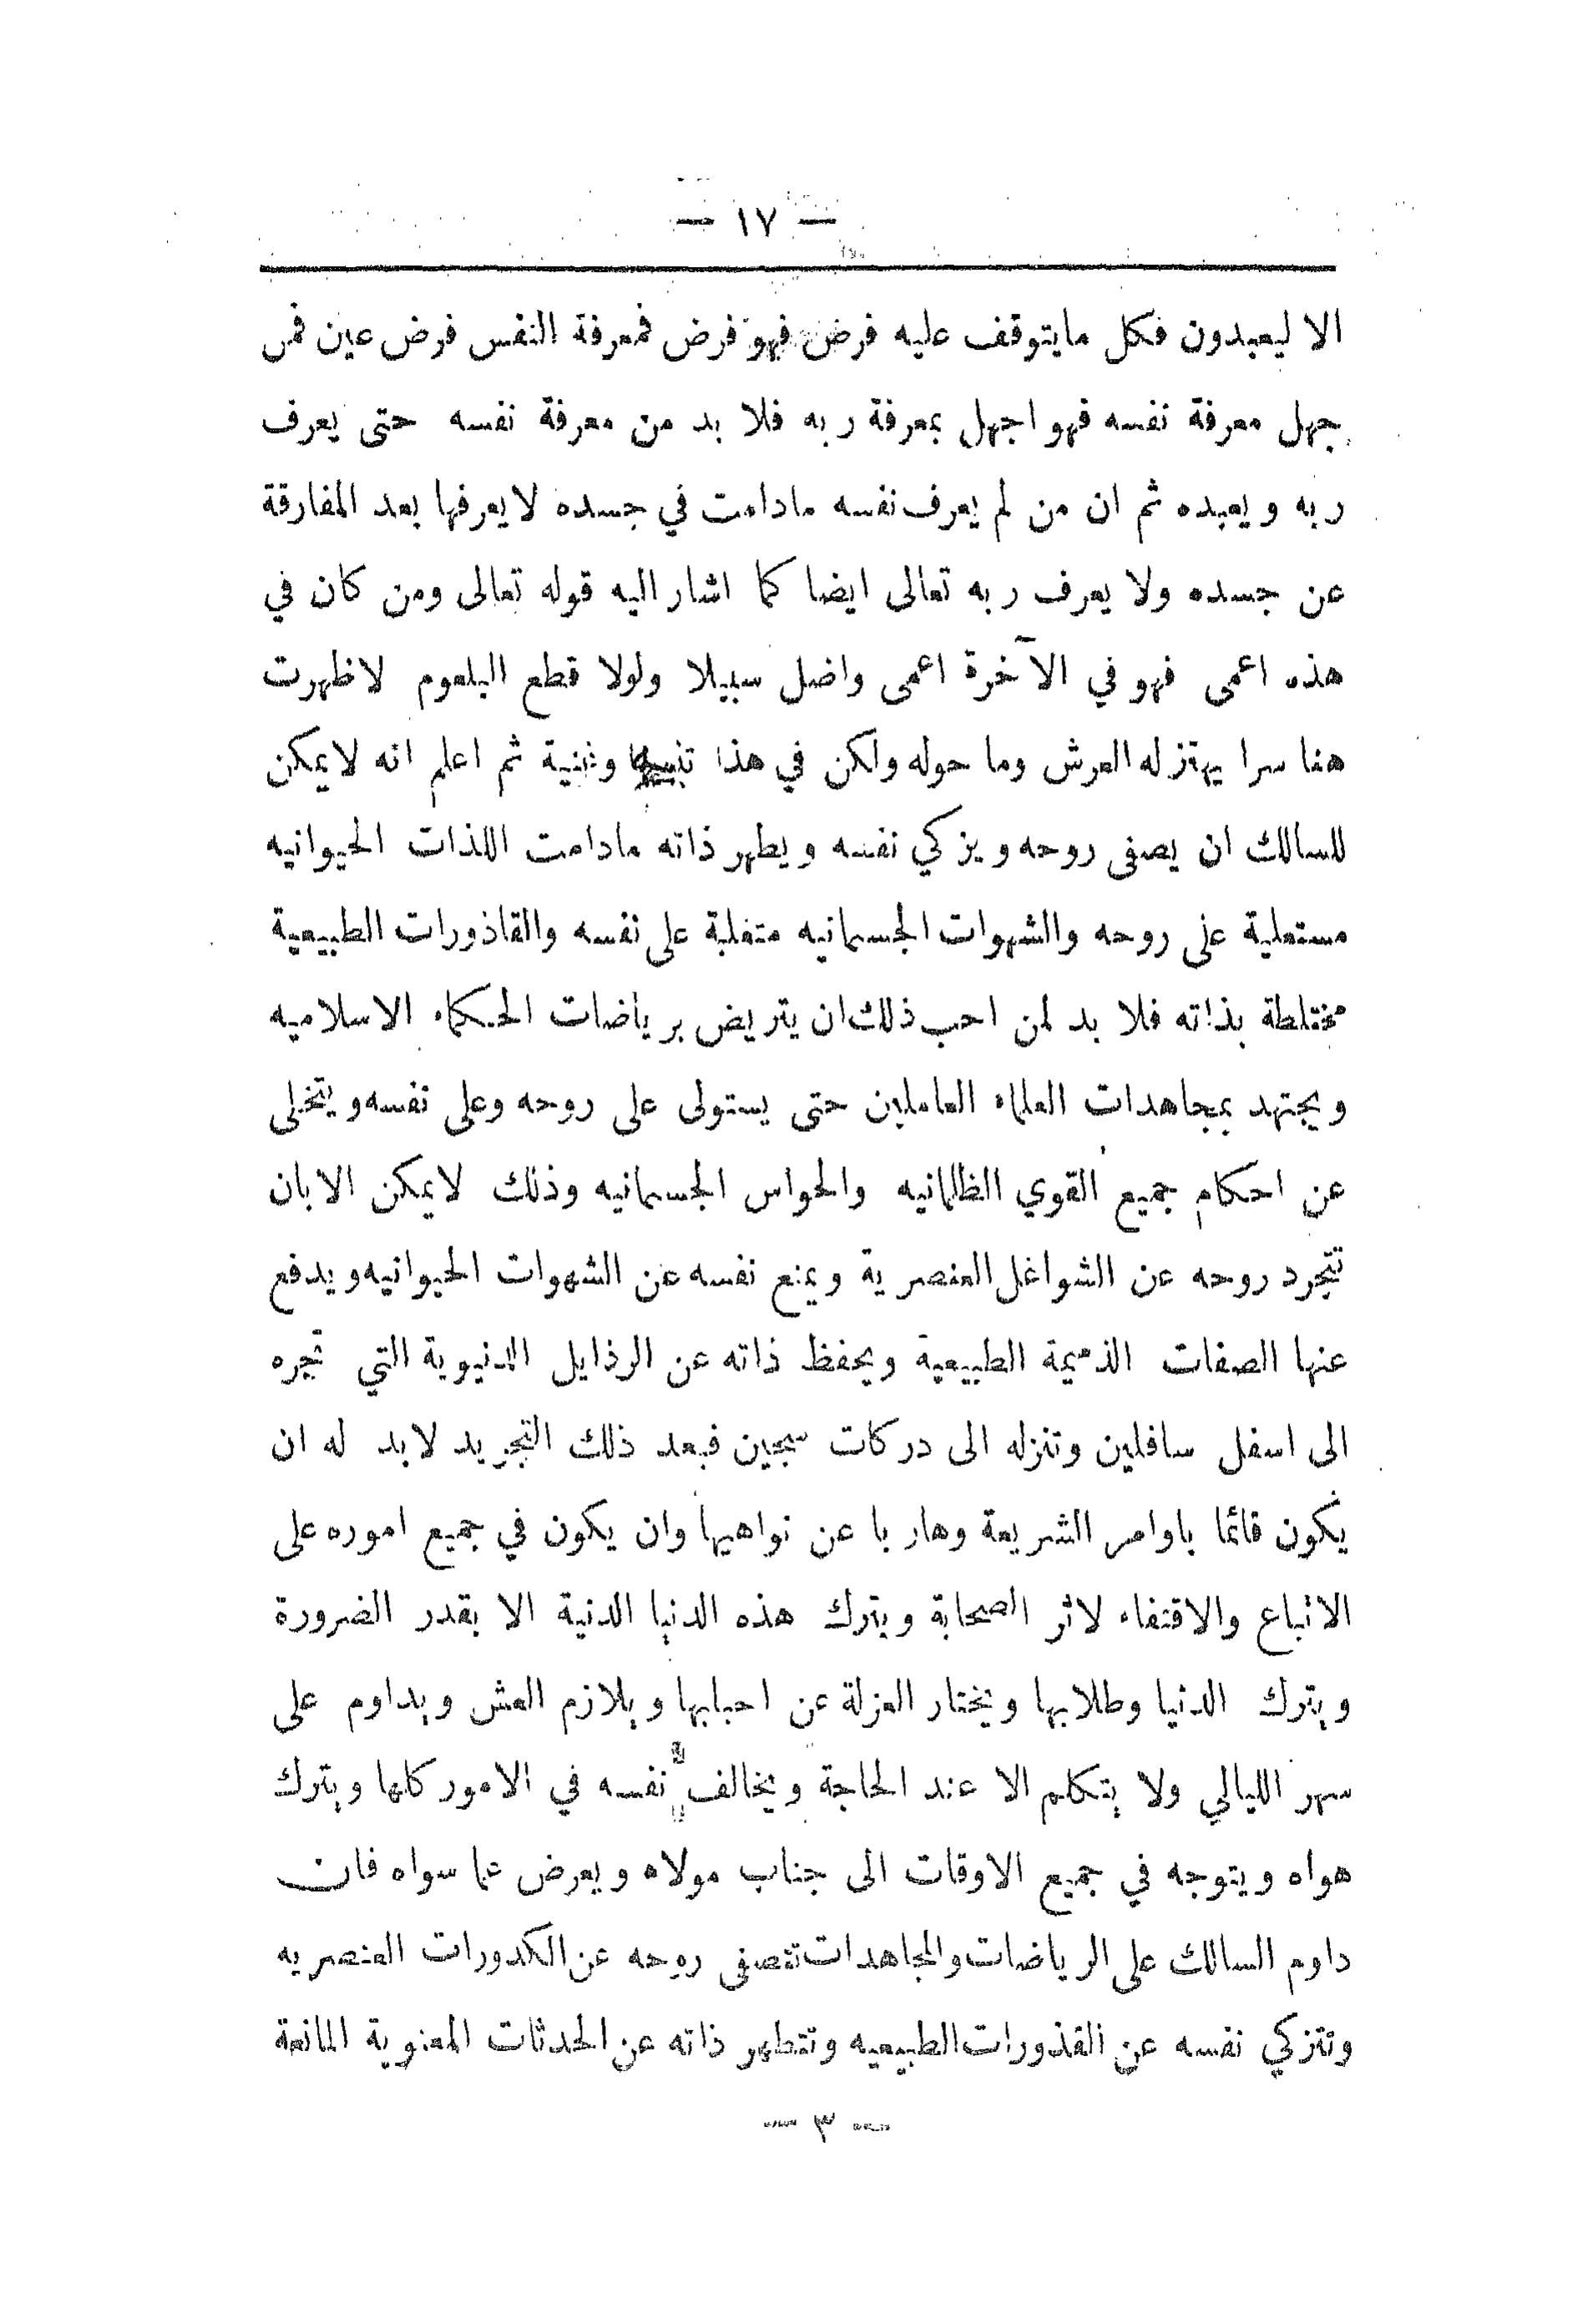 — ١٧ —
الا ليعبدون فكل مايتوقف عليه فرض فهو فرض فمعرفة النفس فرض عين فمن
جهل معرفة نفسه فهو اجهل بمعرفة ربه فلا بد من معرفة نفسه حتى يعرف
ربه ويعبده ثم ان من لم يعرف نفسه مادامت في جسده لايعرفها بعد المفارقة
عن جسده ولا يعرف ربه تعالى ايضا كما اشار اليه قوله تعالى ومن كان في
هذه اعمى فهو في الآخرة اعمى واضل سبيلا ولولا قطع البلعوم لاظهرت
هنا سرا يهتز له العرش وما حوله ولكن في هذا وغنية ثم اعلم انه لايمكن
للسالك ان يصفى روحه ويزكي نفسه ويطهر ذاته مادامت اللذات الحيوانيه
مستعلية على روحه والشهوات الجسمانيه متغلبة على نفسه والقاذورات الطبيعية
مختلطة بذاته فلا بد لمن احب ذلك ان يتريض برياضات الحكماء الاسلاميه
ويجتهد بمجاهدات العلماء العاملين حتى يستولى على روحه وعلى نفسه ويتخلى
عن احكام جميع القوي الظلمانيه والحواس الجسمانيه وذلك لايمكن الابان
تتجرد روحه عن الشواغل العنصرية ويمنع نفسه عن الشهوات الحيوانيه ويدفع
عنها الصفات الذميمة الطبيعية ويحفظ ذاته عن الرذايل الدنيوية التي تجره
الى اسفل سافلين وتنزله الى دركات سجين فبعد ذلك التجريد لابد له ان
يكون قائما باوامر الشريعة وهاربا عن نواهيها وان يكون في جميع اموره على
الاتباع والاقتفاء لاثر الصحابة ويترك هذه الدنيا الدنية الا بقدر الضرورة
ويترك الدنيا وطلابها ويختار العزلة عن احبابها ويلازم العش ويداوم على
سهر الليالي ولا يتكلم الا عند الحاجة ويخالف نفسه في الامور كلها ويترك
هواه ويتوجه في جميع الاوقات الى جناب مولاه ويعرض عما سواه فان
داوم السالك على الرياضات والمجاهدات تتصفى روحه عن الكدورات العنصريه
وتتزكي نفسه عن القذورات الطبيعيه وتتطهر ذاته عن الحدثات المعنوية المانعة
— ٣ —